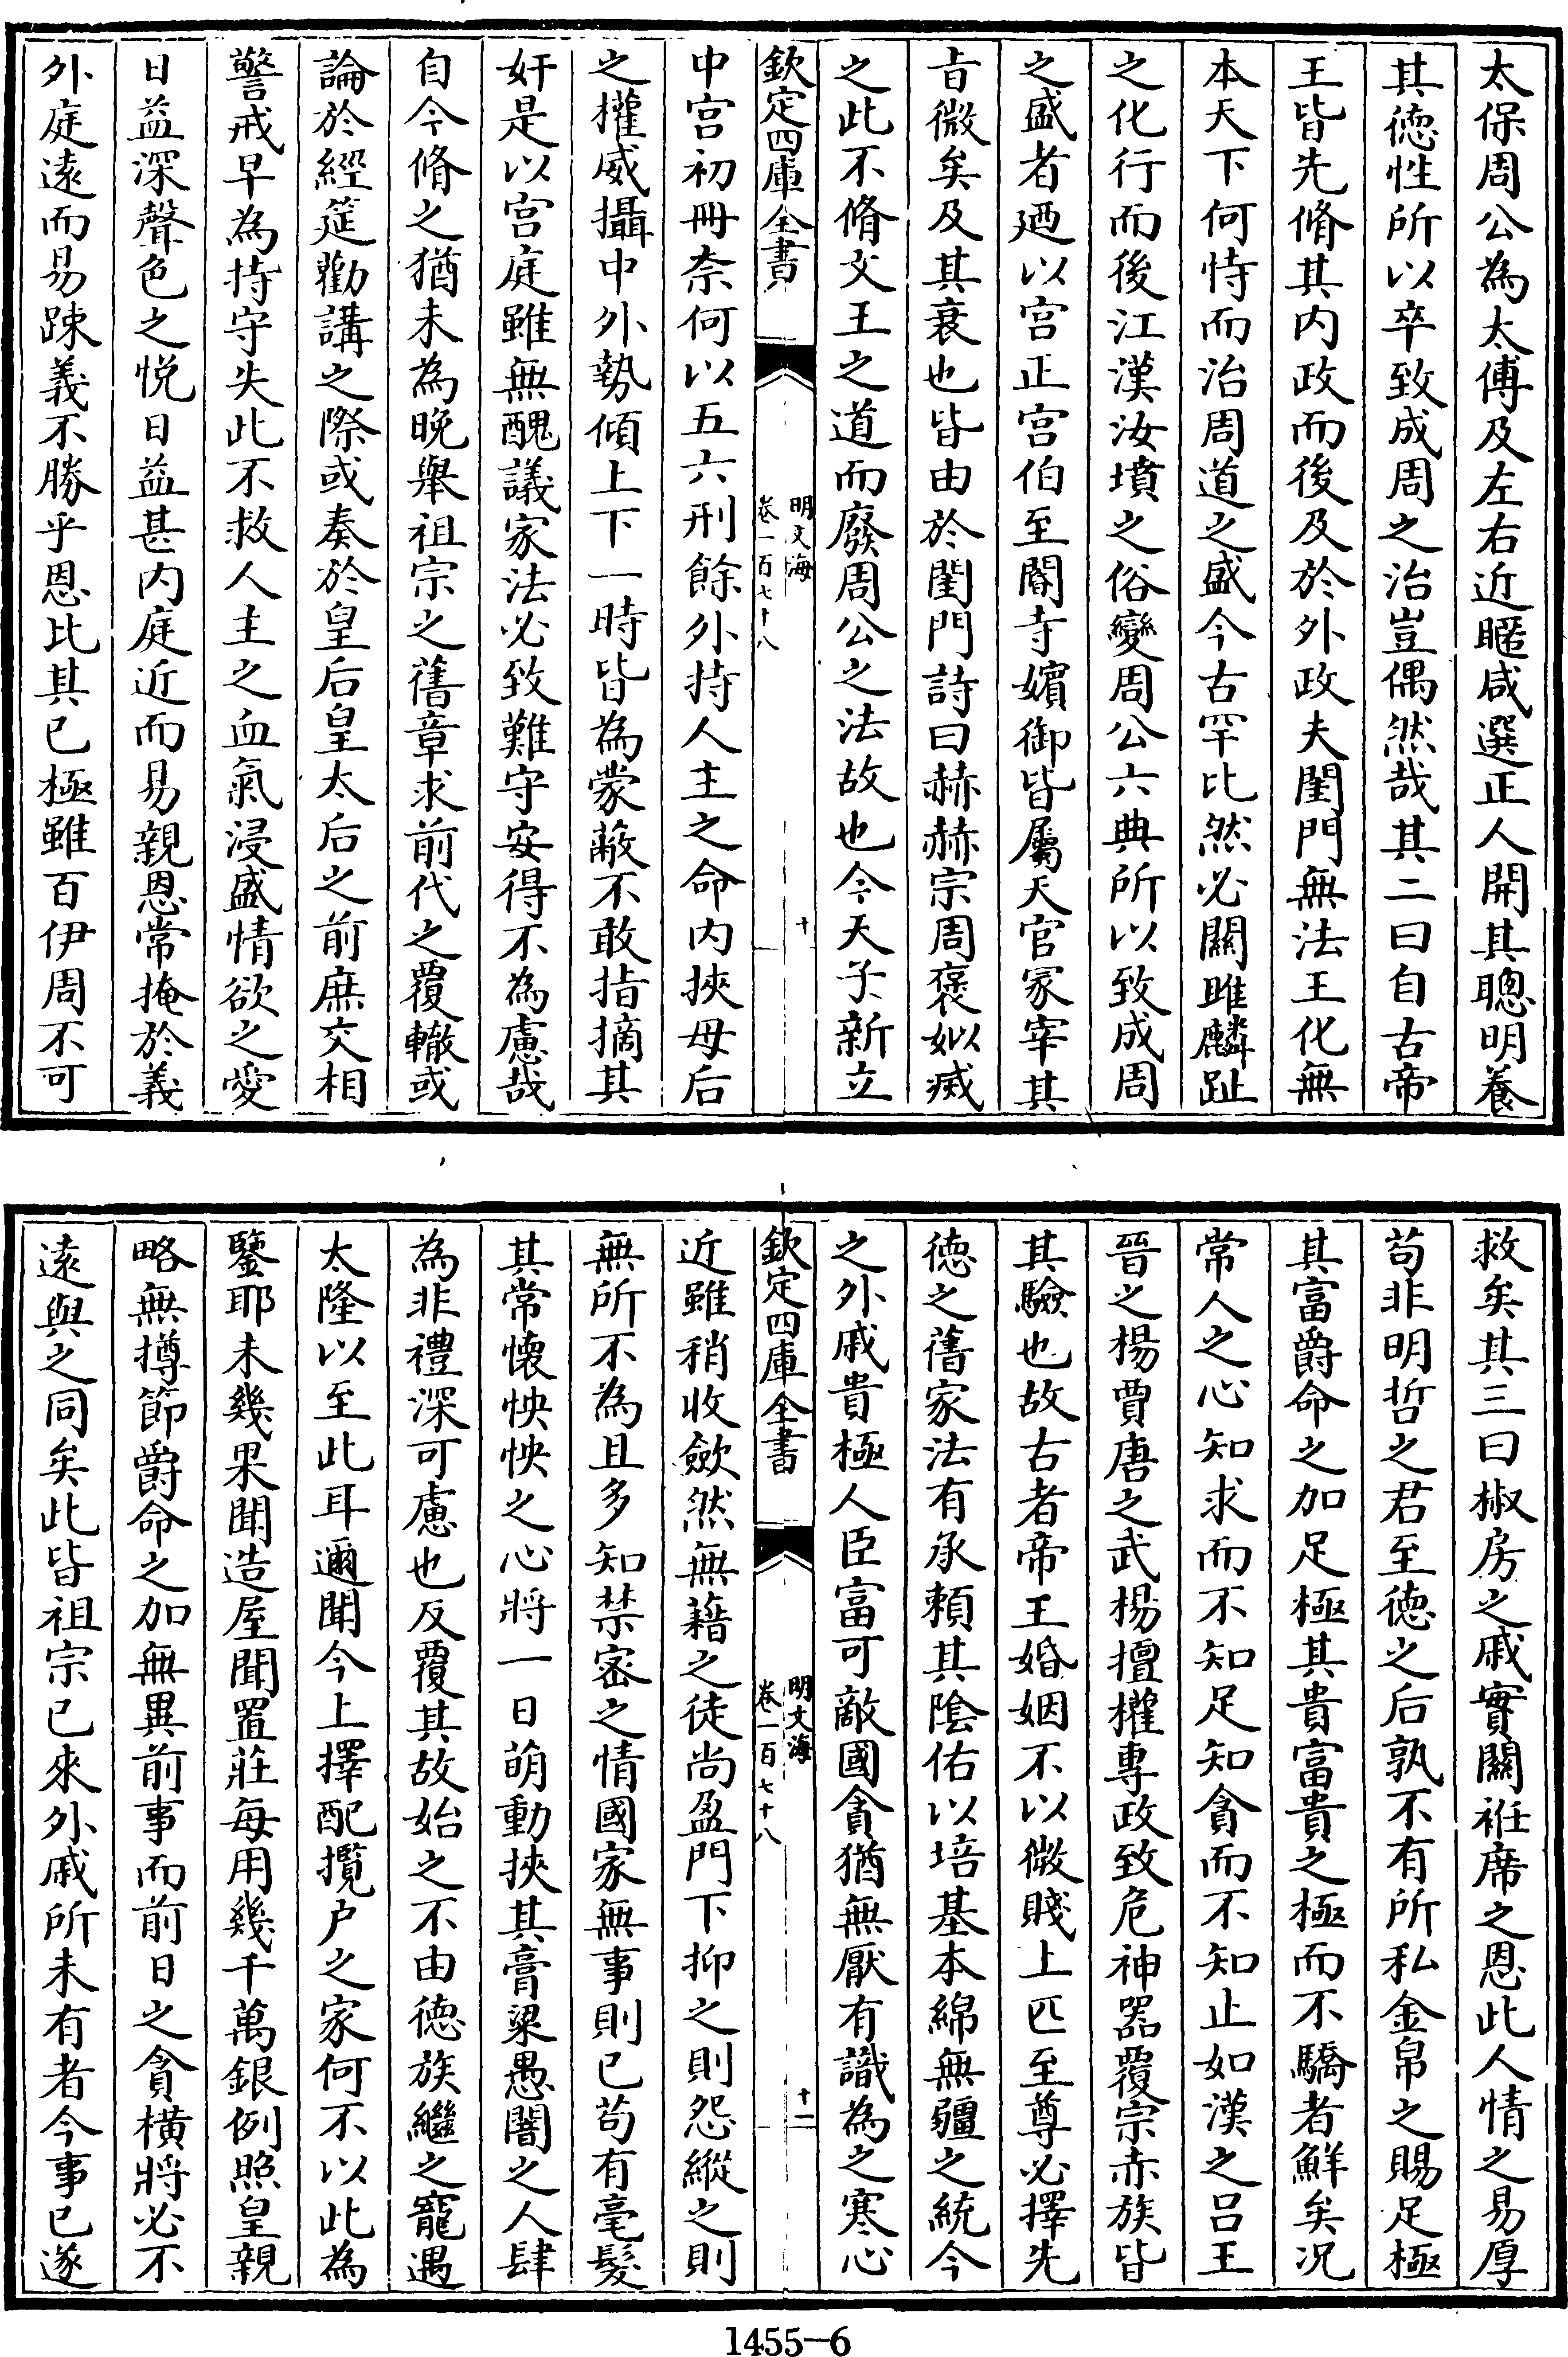 太保周公為太傅及左右近暱咸選正人開其聰明養
其徳性所以卒致成周之治豈偶然哉其二曰自古帝
王皆先脩其内政而後及於外政夫閨門無法王化無
本天下何恃而治周道之盛今古罕比然必關雎麟趾
之化行而後江漢汝墳之俗變周公六典所以致成周
之盛者廼以宫正宫伯至閽寺嬪御皆屬天官冢宰其
㫖微矣及其衰也皆由於閨門詩曰赫赫宗周褒姒烕
之此不脩文王之道而廢周公之法故也今天子新立
欽定四庫全書
明文海
卷一百七十八
十
中宫初冊奈何以五六刑餘外持人主之命内挾母后
之權威攝中外勢傾上下一時皆為蒙蔽不敢指摘其
奸是以宫庭雖無醜議家法必致難守安得不為慮哉
自今脩之猶未為晚舉祖宗之舊章求前代之覆轍或
論於經筵勸講之際或奏於皇后皇太后之前庶交相
警戒早為持守失此不救人主之血氣浸盛情欲之愛
日益深聲色之悦日益甚内庭近而易親恩常掩於義
外庭遠而易踈義不勝乎恩比其已極雖百伊周不可
救矣其三曰椒房之戚實關袵席之恩此人情之易厚
苟非明哲之君至徳之后孰不有所私金帛之賜足極
其富爵命之加足極其貴富貴之極而不驕者鮮矣况
常人之心知求而不知足知貪而不知止如漢之吕王
晉之楊賈唐之武楊擅權專政致危神器覆宗赤族皆
其驗也故古者帝王婚姻不以微賤上匹至尊必擇先
徳之舊家法有承賴其陰佑以培基本綿無疆之統今
之外戚貴極人臣富可敵國貪猶無厭有識為之寒心
欽定四庫全書
明文海
卷一百七十八
十一
近雖稍收歛然無藉之徒尚盈門下抑之則怨縱之則
無所不為且多知禁宻之情國家無事則已茍有毫髮
其常懐怏怏之心將一日萌動挾其膏粱愚闇之人肆
為非禮深可慮也反覆其故始之不由徳族繼之寵遇
太隆以至此耳邇聞今上擇配攬户之家何不以此為
鑒耶未幾果聞造屋聞置莊每用幾千萬銀例照皇親
略無撙節爵命之加無異前事而前日之貪横將必不
逺與之同矣此皆祖宗已來外戚所未有者今事已遂
1455-6